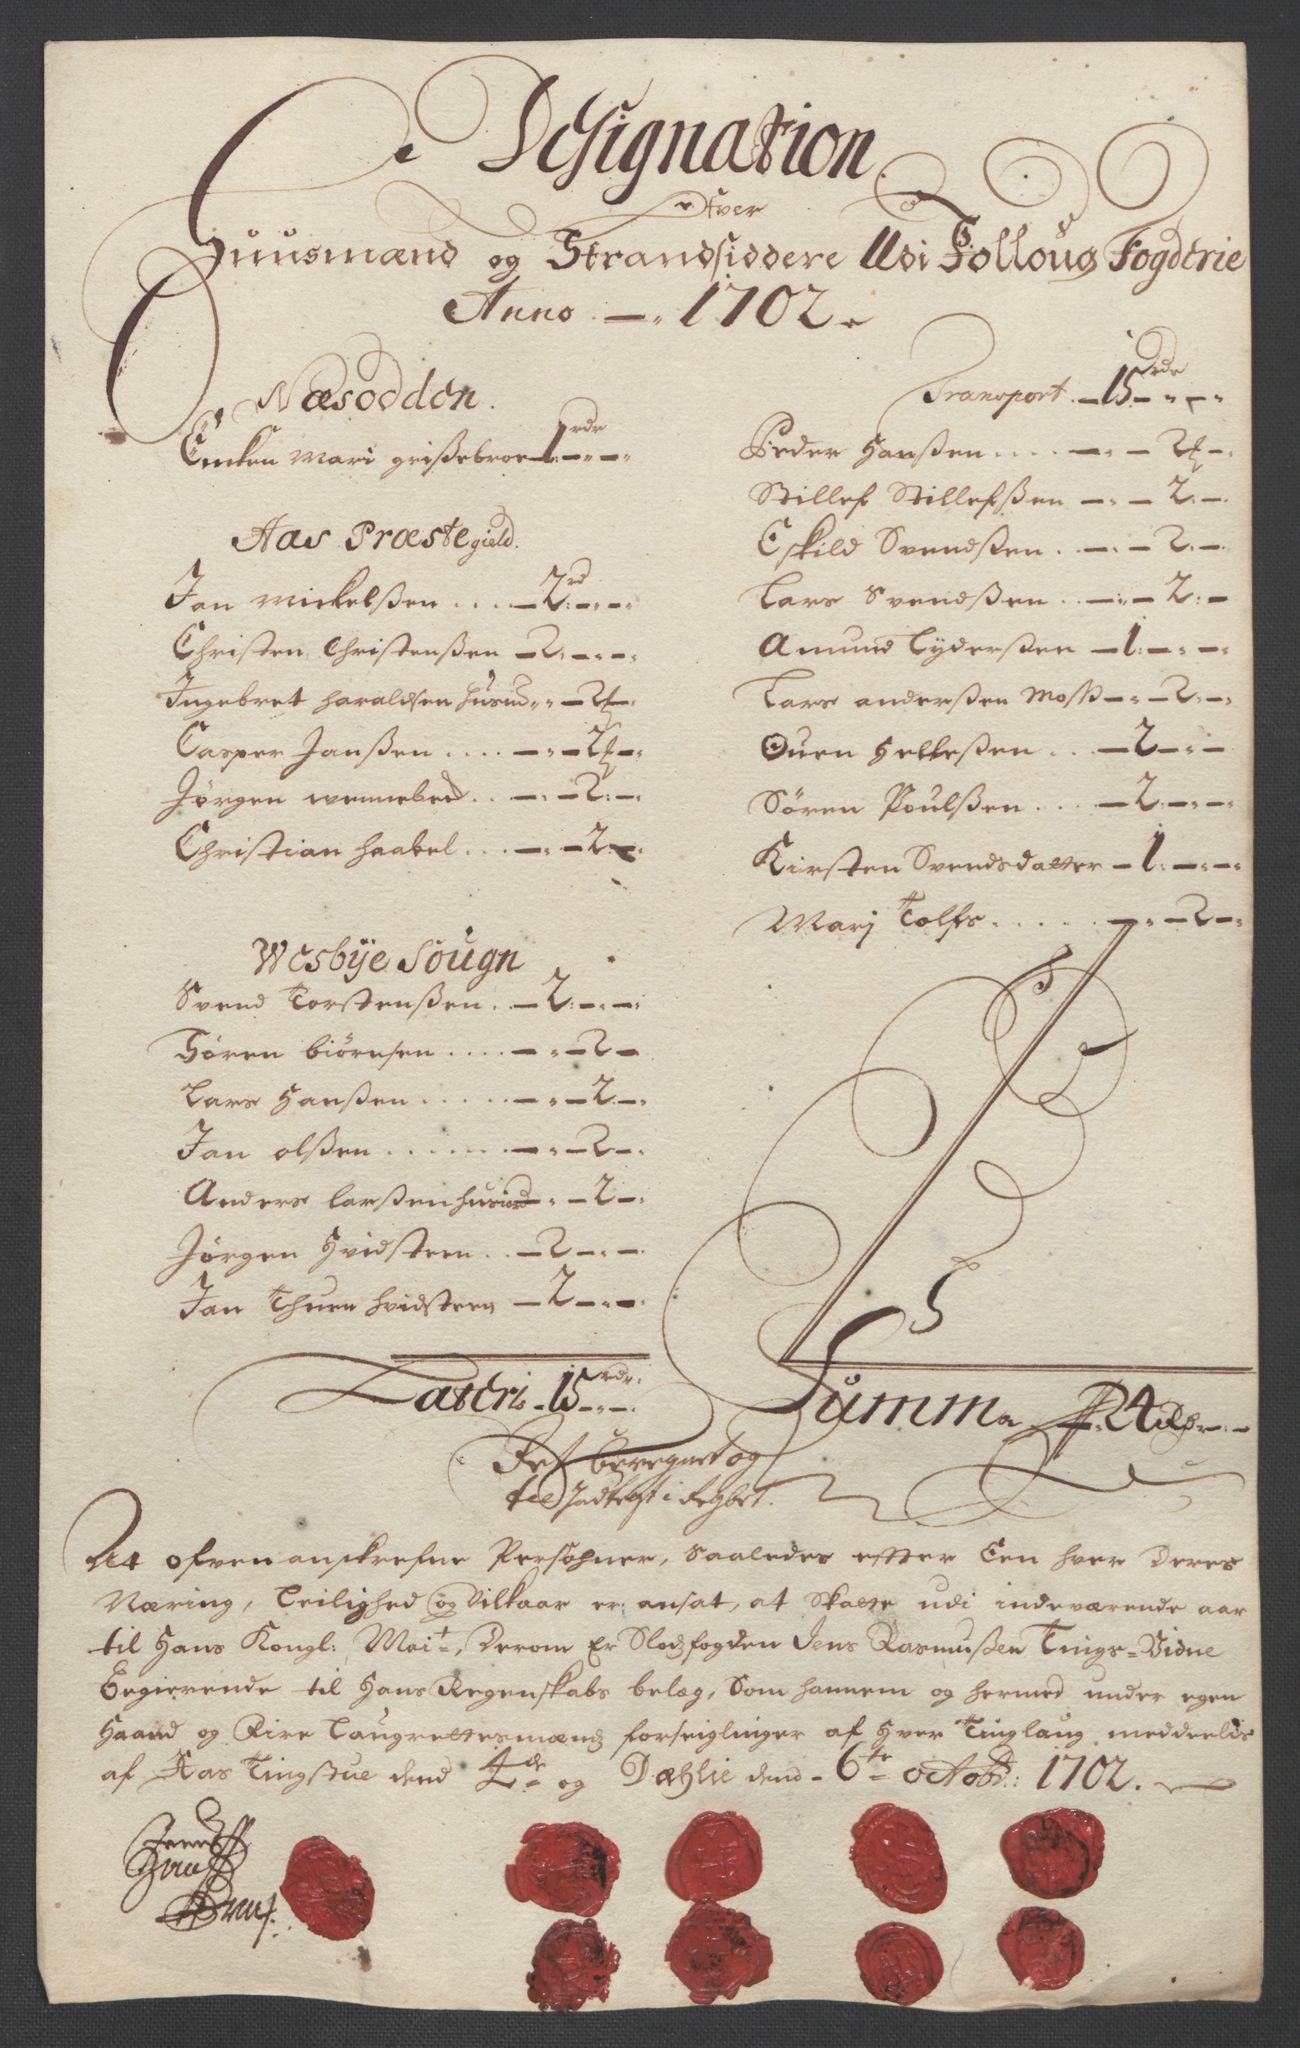 Designation
Over
Huusmænd og Strandsiddere Udi Follous Fogderie
Anno — 1702
Næsodden.
Encken Mari grißebroe — 1 rdr — —
Aas Præstegield.
Jan Mickelßen . . . . — 2 rd — —
Christen Christenßen — 2 — —
Ingebret haraldsen — 2 —
Casper Janßen . . . . — 2 —
Jørgen wennebeck . . — 2 —
Christian haabel . . . — 2 —
Wesbÿe Sougn
Svend Torstenßen . . — 2 — —
Sören biörnsen . . . . — 2 —
Lars Hanßen . . . . . — 2 —
Jan olßen . . . . . . — 2 —
Anders larßen — 2 —
Jørgen Hvidsteen . . — 2 — —
Jan Thuen hvidsteen — 2 — —
Lateris — 15 rdr —
Transport — 15 rdr — —
Peder Hanßen . . . . — 2 —
Stillef Stillefßen — 2 —
Eskild Svendßen . . — 2 —
Lars Svendßen . . — 2 —
Amund Tyderßen — 1 — —
Lars anderßen Moss — 2 —
Ouen Helleßen . . . — 2 — —
Sören Poulßen . . . — 2 — —
Kirsten Svendsdatter — 1 — —
Marj Tolfs . . . . . — 2 —
Summa 24 rdr —
Ret beregnet og
til Indtegt i
At ofvenanskrefne Persohner, saaledes efter Een hver Deres
Næring, Leilighed og Vilkaar er ansat, at Skatte udi indeværende aar
til Hans Kongl: Mait, Derom Er Slodsfogden Jens Rasmußen Tings-Vidne
Begierende til Hans Regenskabs belæg, Som hannem og hermed under egen
Haand og Laugrettesmænds forseiglinger af Hver Tinglaug meddeelis
af Aas Tingstue dend 4de og Dæhlie dend 6te octobr: 1702.